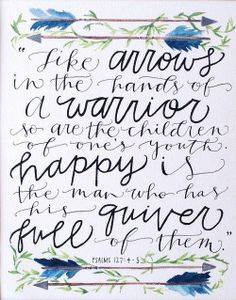 "Like arrows
in the hands of
a warrior
so are the children
of one's youth.
happy is
the man who has
his quiver
full of them."
PSALMS 127:4-5